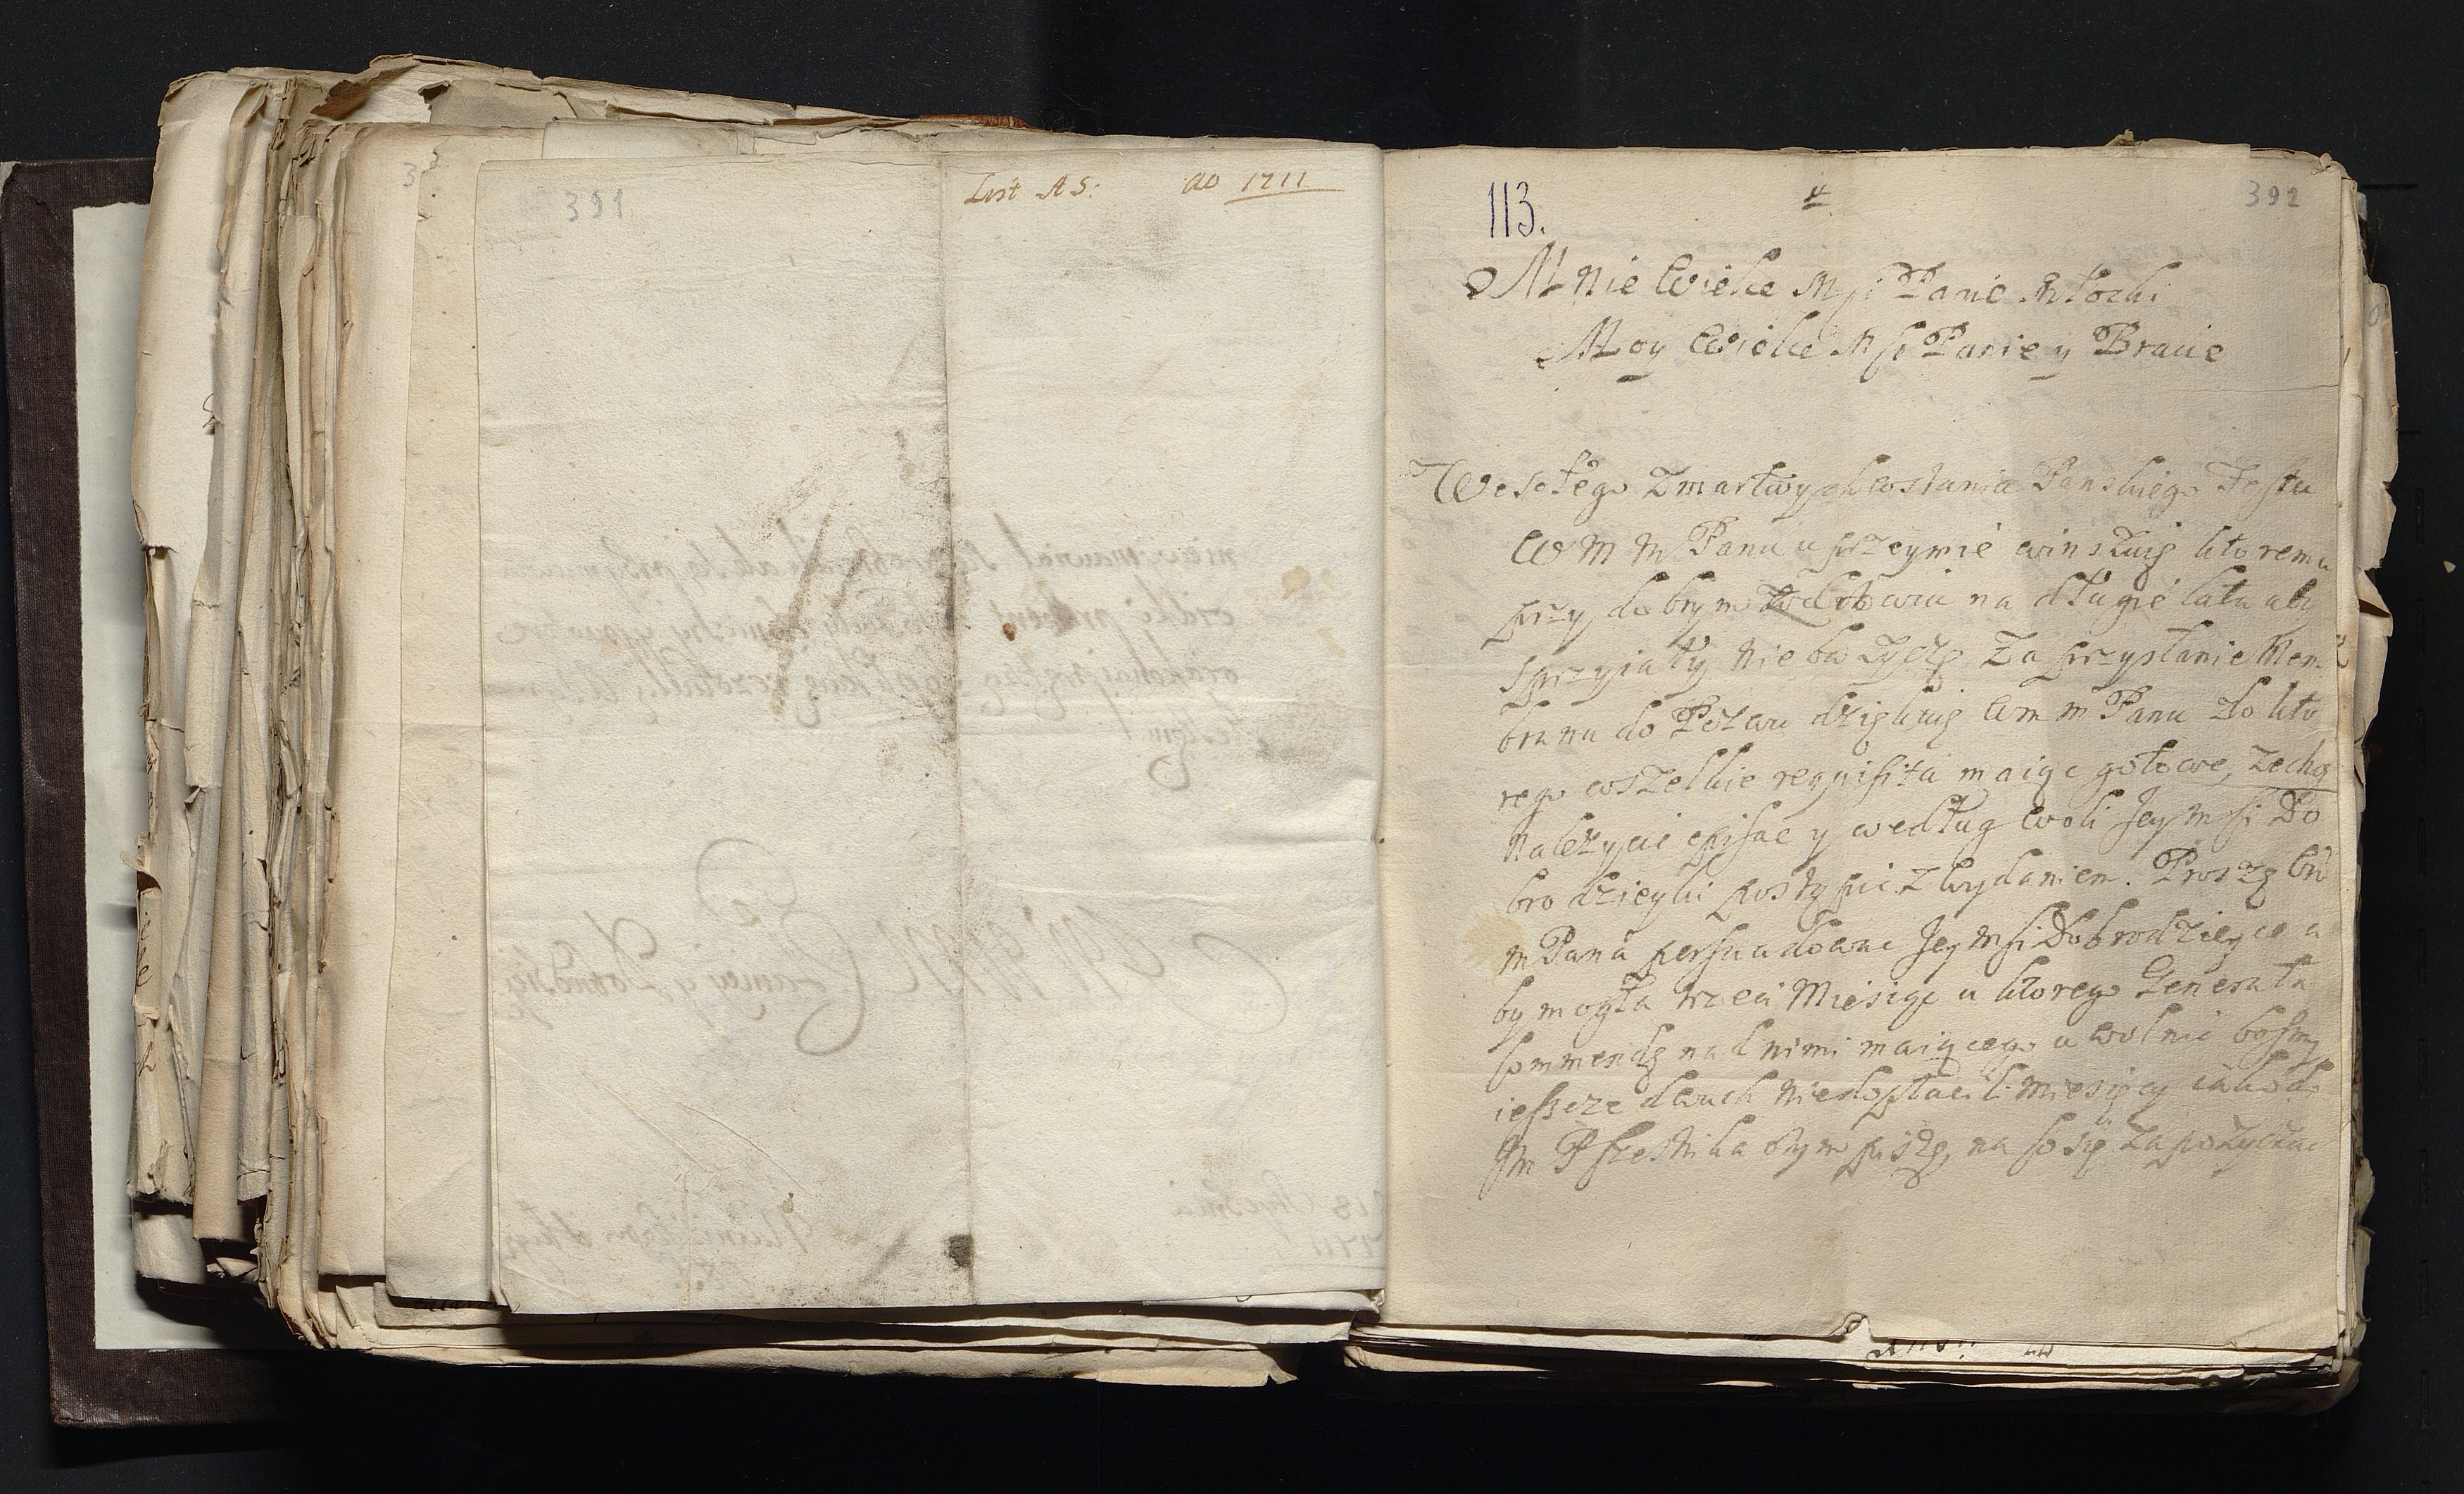 391
List A S: ao 1711
392
113.
Mnie Wielce M Panie
Moy Wielce M Panie y Bracie
Wesołego Zmartwychwstania Panskiego Festu
W M M Panu uprzeymie winszuię ktoremu
przy dobrym zdrowiu na długie lata aby
sprzyiały Nieba życzę Za przysłanie Mem
branu do Pozwu dziękuię Wm m Panu Do kto
rego wszelkie requisita maiąc gotowe, zechą
należycie spisac y według woli Jeymsi Do
brodzieyki postąpic z wydaniem. Proszę W
m Pana persuadowac Jeymsi Dobrodzieyce a
by mogła trzeci Miesiąc u ktorego Generała
kommendę nad nimi maiącego uwolnic bosmy
ieszcze dwuch niedopłacili miesięcy iako do
Jm P piszę, na co się zapożyczac